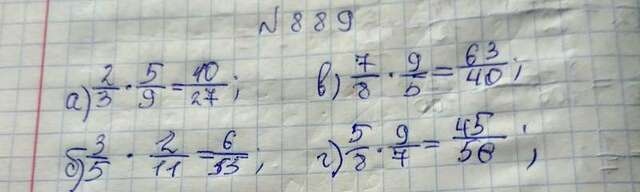 №889
а) 2/3 · 5/9 = 10/27; в) 7/8 · 9/5 = 63/40;
б) 3/5 · 2/11 = 6/55; г) 5/8 · 9/7 = 45/56;